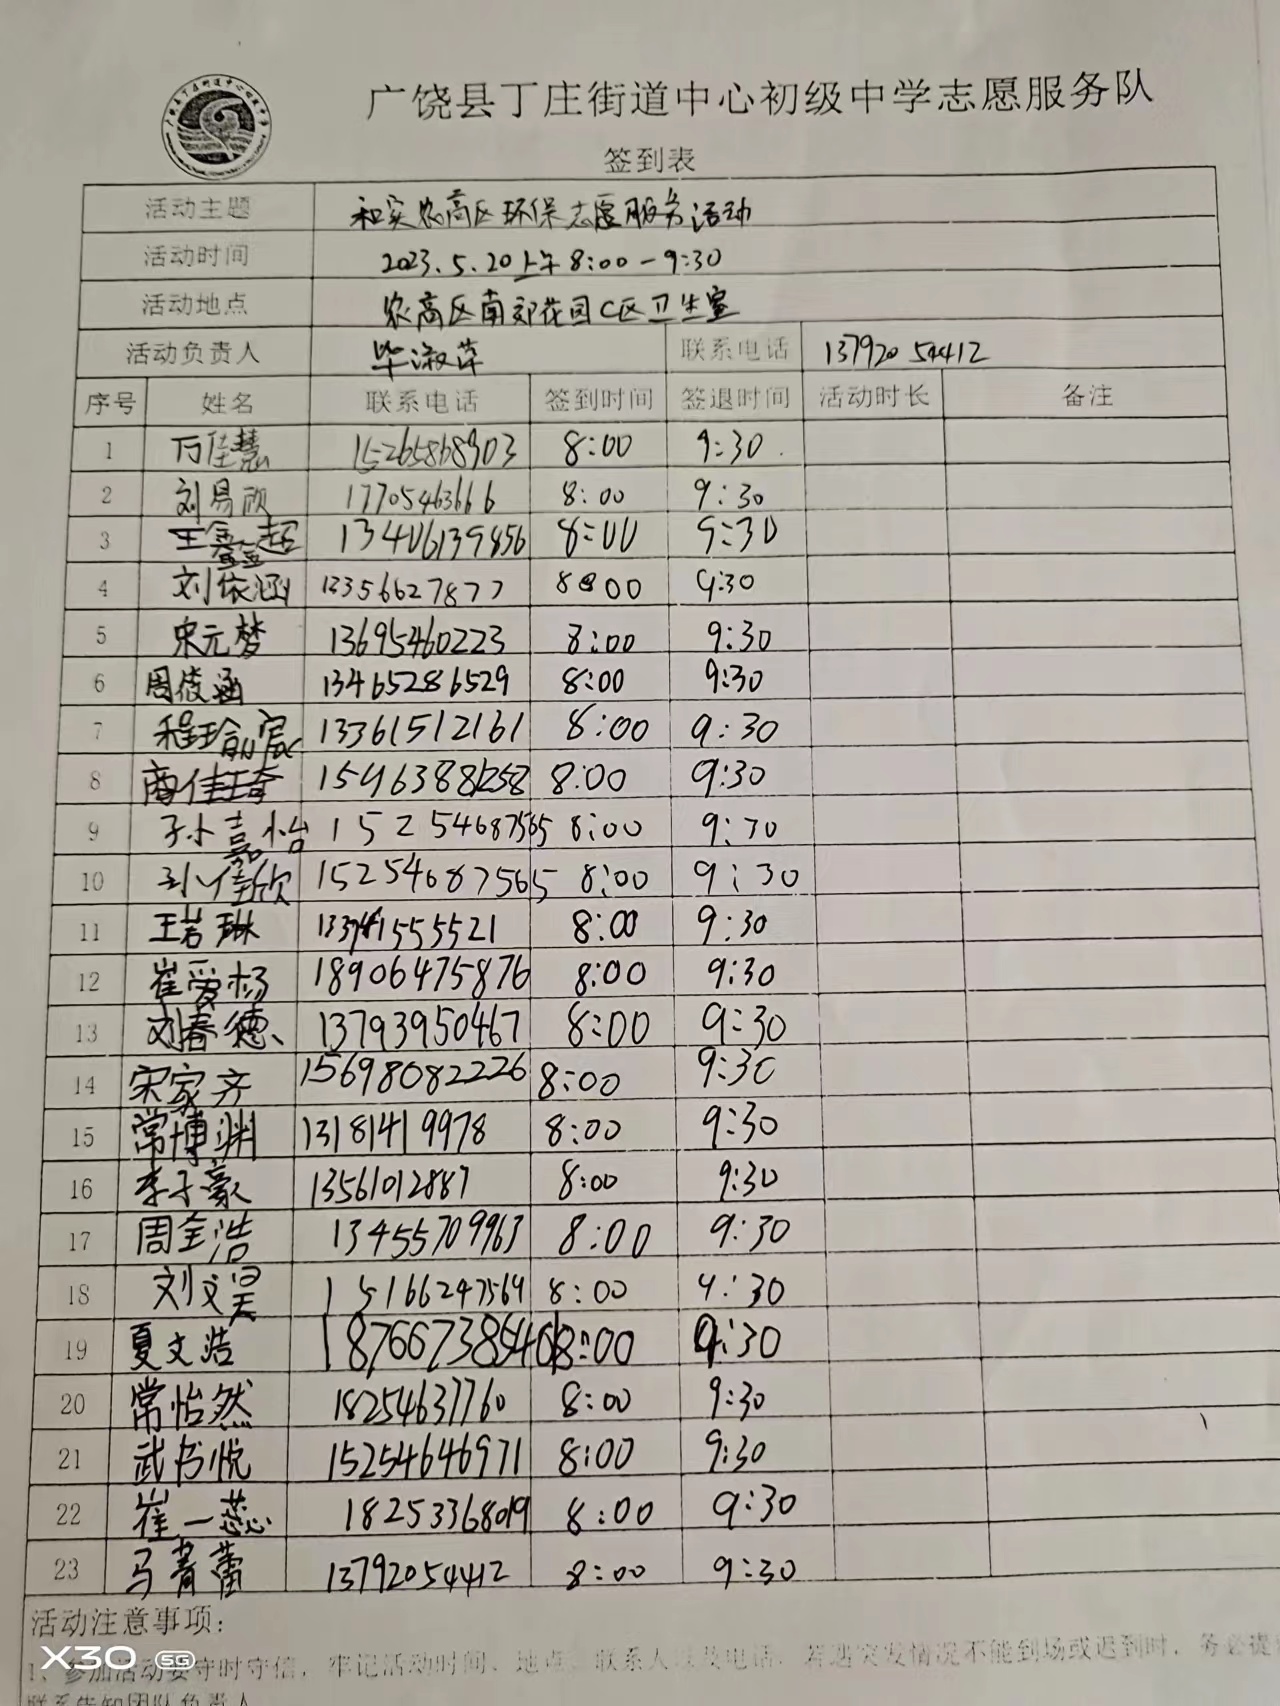 广饶县丁庄街道中心初级中学志愿服务队
签到表
活动主题 和实农高区环保志愿服务活动
活动时间 2023.5.20上午8:00-9:30
活动地点 农高区南郊花园C区卫生室
活动负责人 毕淑萍 联系电话 13792054412
序号 姓名 联系电话 签到时间 签退时间 活动时长 备注
1 万佳慧 15265868903 8:00 9:30
2 刘易欣 17705463666 8:00 9:30
3 王鑫超 13406139856 8:00 9:30
4 刘依涵 12356627877 8:00 9:30
5 宋元梦 13695460223 8:00 9:30
6 周俊涵 13465286529 8:00 9:30
7 程瑜宸 13361512161 8:00 9:30
8 商佳琦 15463881258 8:00 9:30
9 孙嘉怡 15254687565 8:00 9:30
10 孙佳欣 15254687565 8:00 9:30
11 王若琳 8:00 9:30
12 崔爱杨 18906475876 8:00 9:30
13 刘春德 13793950467 8:00 9:30
14 宋家齐 15698082226 8:00 9:30
15 常博渊 13181419978 8:00 9:30
16 李子豪 13561012887 8:00 9:30
17 周全浩 13455709963 8:00 9:30
18 刘文昊 15166247569 8:00 9:30
19 夏文浩 8:00 9:30
20 常怡然 18254637760 8:00 9:30
21 武书悦 15254646971 8:00 9:30
22 崔一蕊 18253368019 8:00 9:30
23 马菁蕾 13792054412 8:00 9:30
活动注意事项:
1、参加活动要守时守信，牢记活动时间、地点、联系人以及电话，若遇突发情况不能到场或迟到时，务必提
联系告知团队负责人
X30 5G